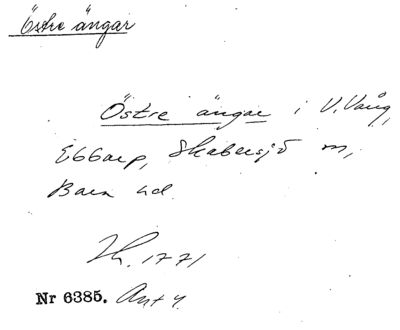 Östre ängar
Östre ängar i V. Vång,
Ebbarp, Skabersjö m,
Bara hd.
1771
Nr 6385. Ant 4.